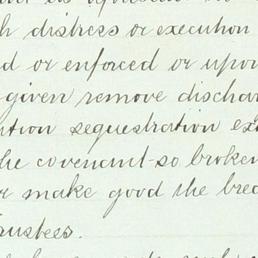 h distress or execution
d or enforced or upon
given remove dischar
tion sequestration ex
he covenant so broken
r make good the brea
rustees.